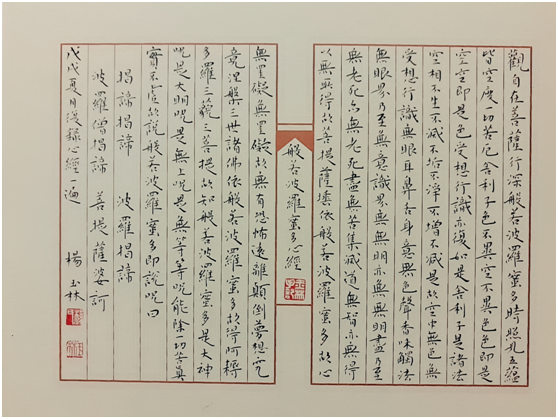 觀自在菩薩行深般若波羅蜜多時照見五蘊
皆空度一切苦厄舍利子色不異空空不異色色即是
空空即是色受想行識亦復如是舍利子是諸法
空相不生不滅不垢不淨不增不減是故空中無色無
受想行識無眼耳鼻舌身意無色聲香味觸法
無眼界乃至無意識界無無明亦無無明盡乃至
無老死亦無老死盡無苦集滅道無智亦無得
以無所得故菩提薩埵依般若波羅蜜多故心
般若波羅蜜多心經
無罣礙無罣礙故無有恐怖遠離顛倒夢想究
竟涅槃三世諸佛依般若波羅蜜多故得阿耨
多羅三藐三菩提故知般若波羅蜜多是大神
咒是大明咒是無上咒是無等等咒能除一切苦真
實不虛故說般若波羅蜜多即說咒曰
揭諦揭諦 波羅揭諦
波羅僧揭諦 菩提薩婆訶
戊戌夏月錄心經一遍 楊玉林